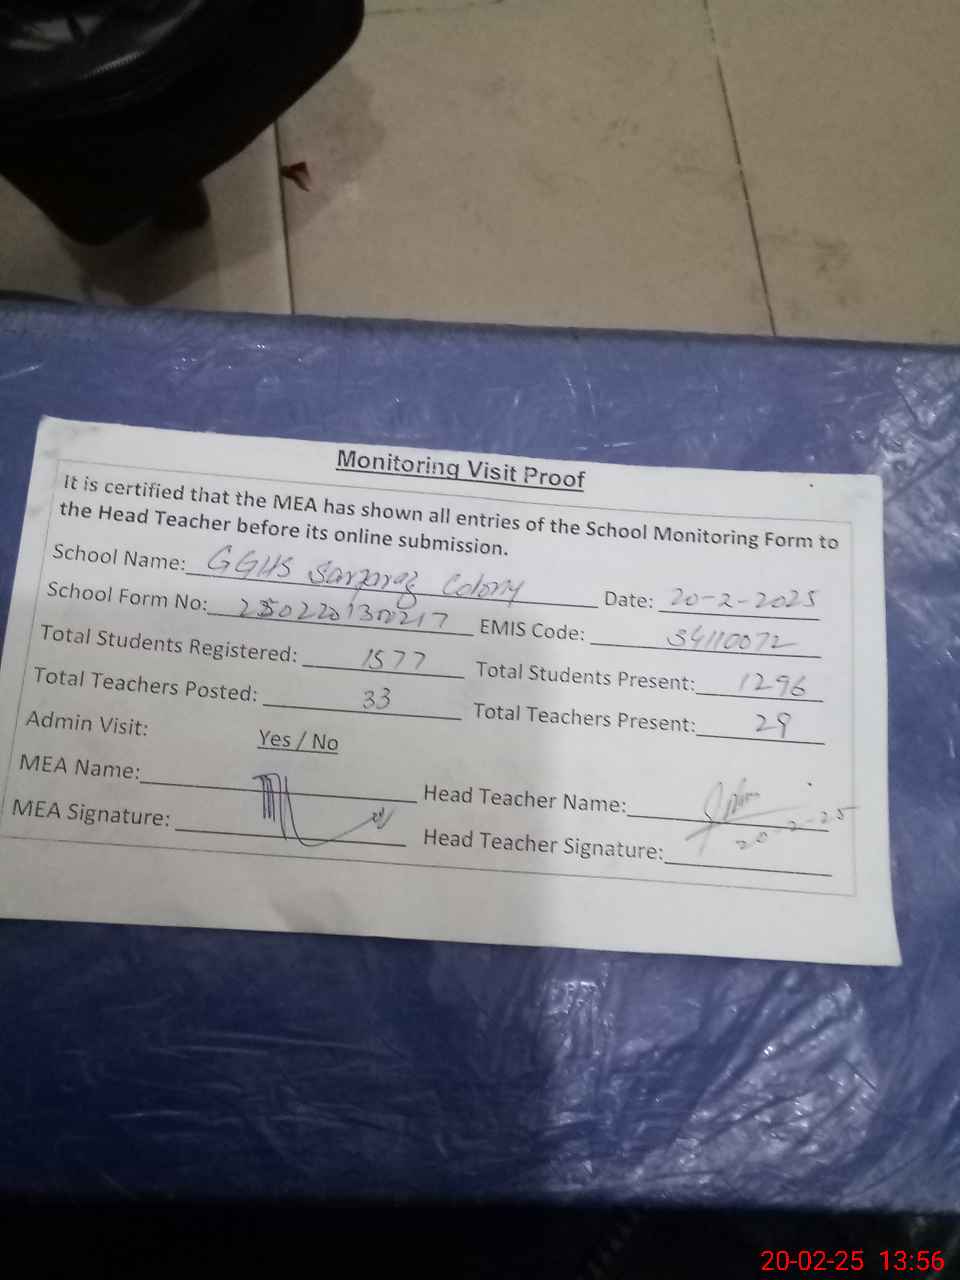 Monitoring Visit Proof
It is certified that the MEA has shown all entries of the School Monitoring Form to
the Head Teacher before its online submission.
School Name: GGHS Sarfraz Colony Date: 20-2-2025
School Form No: EMIS Code: 34110072
Total Students Registered: 1577 Total Students Present: 1296
Total Teachers Posted: 33 Total Teachers Present: 29
Admin Visit: Yes / No
MEA Name: Head Teacher Name:
20-2-25
MEA Signature: Head Teacher Signature:
20-02-25 13:56